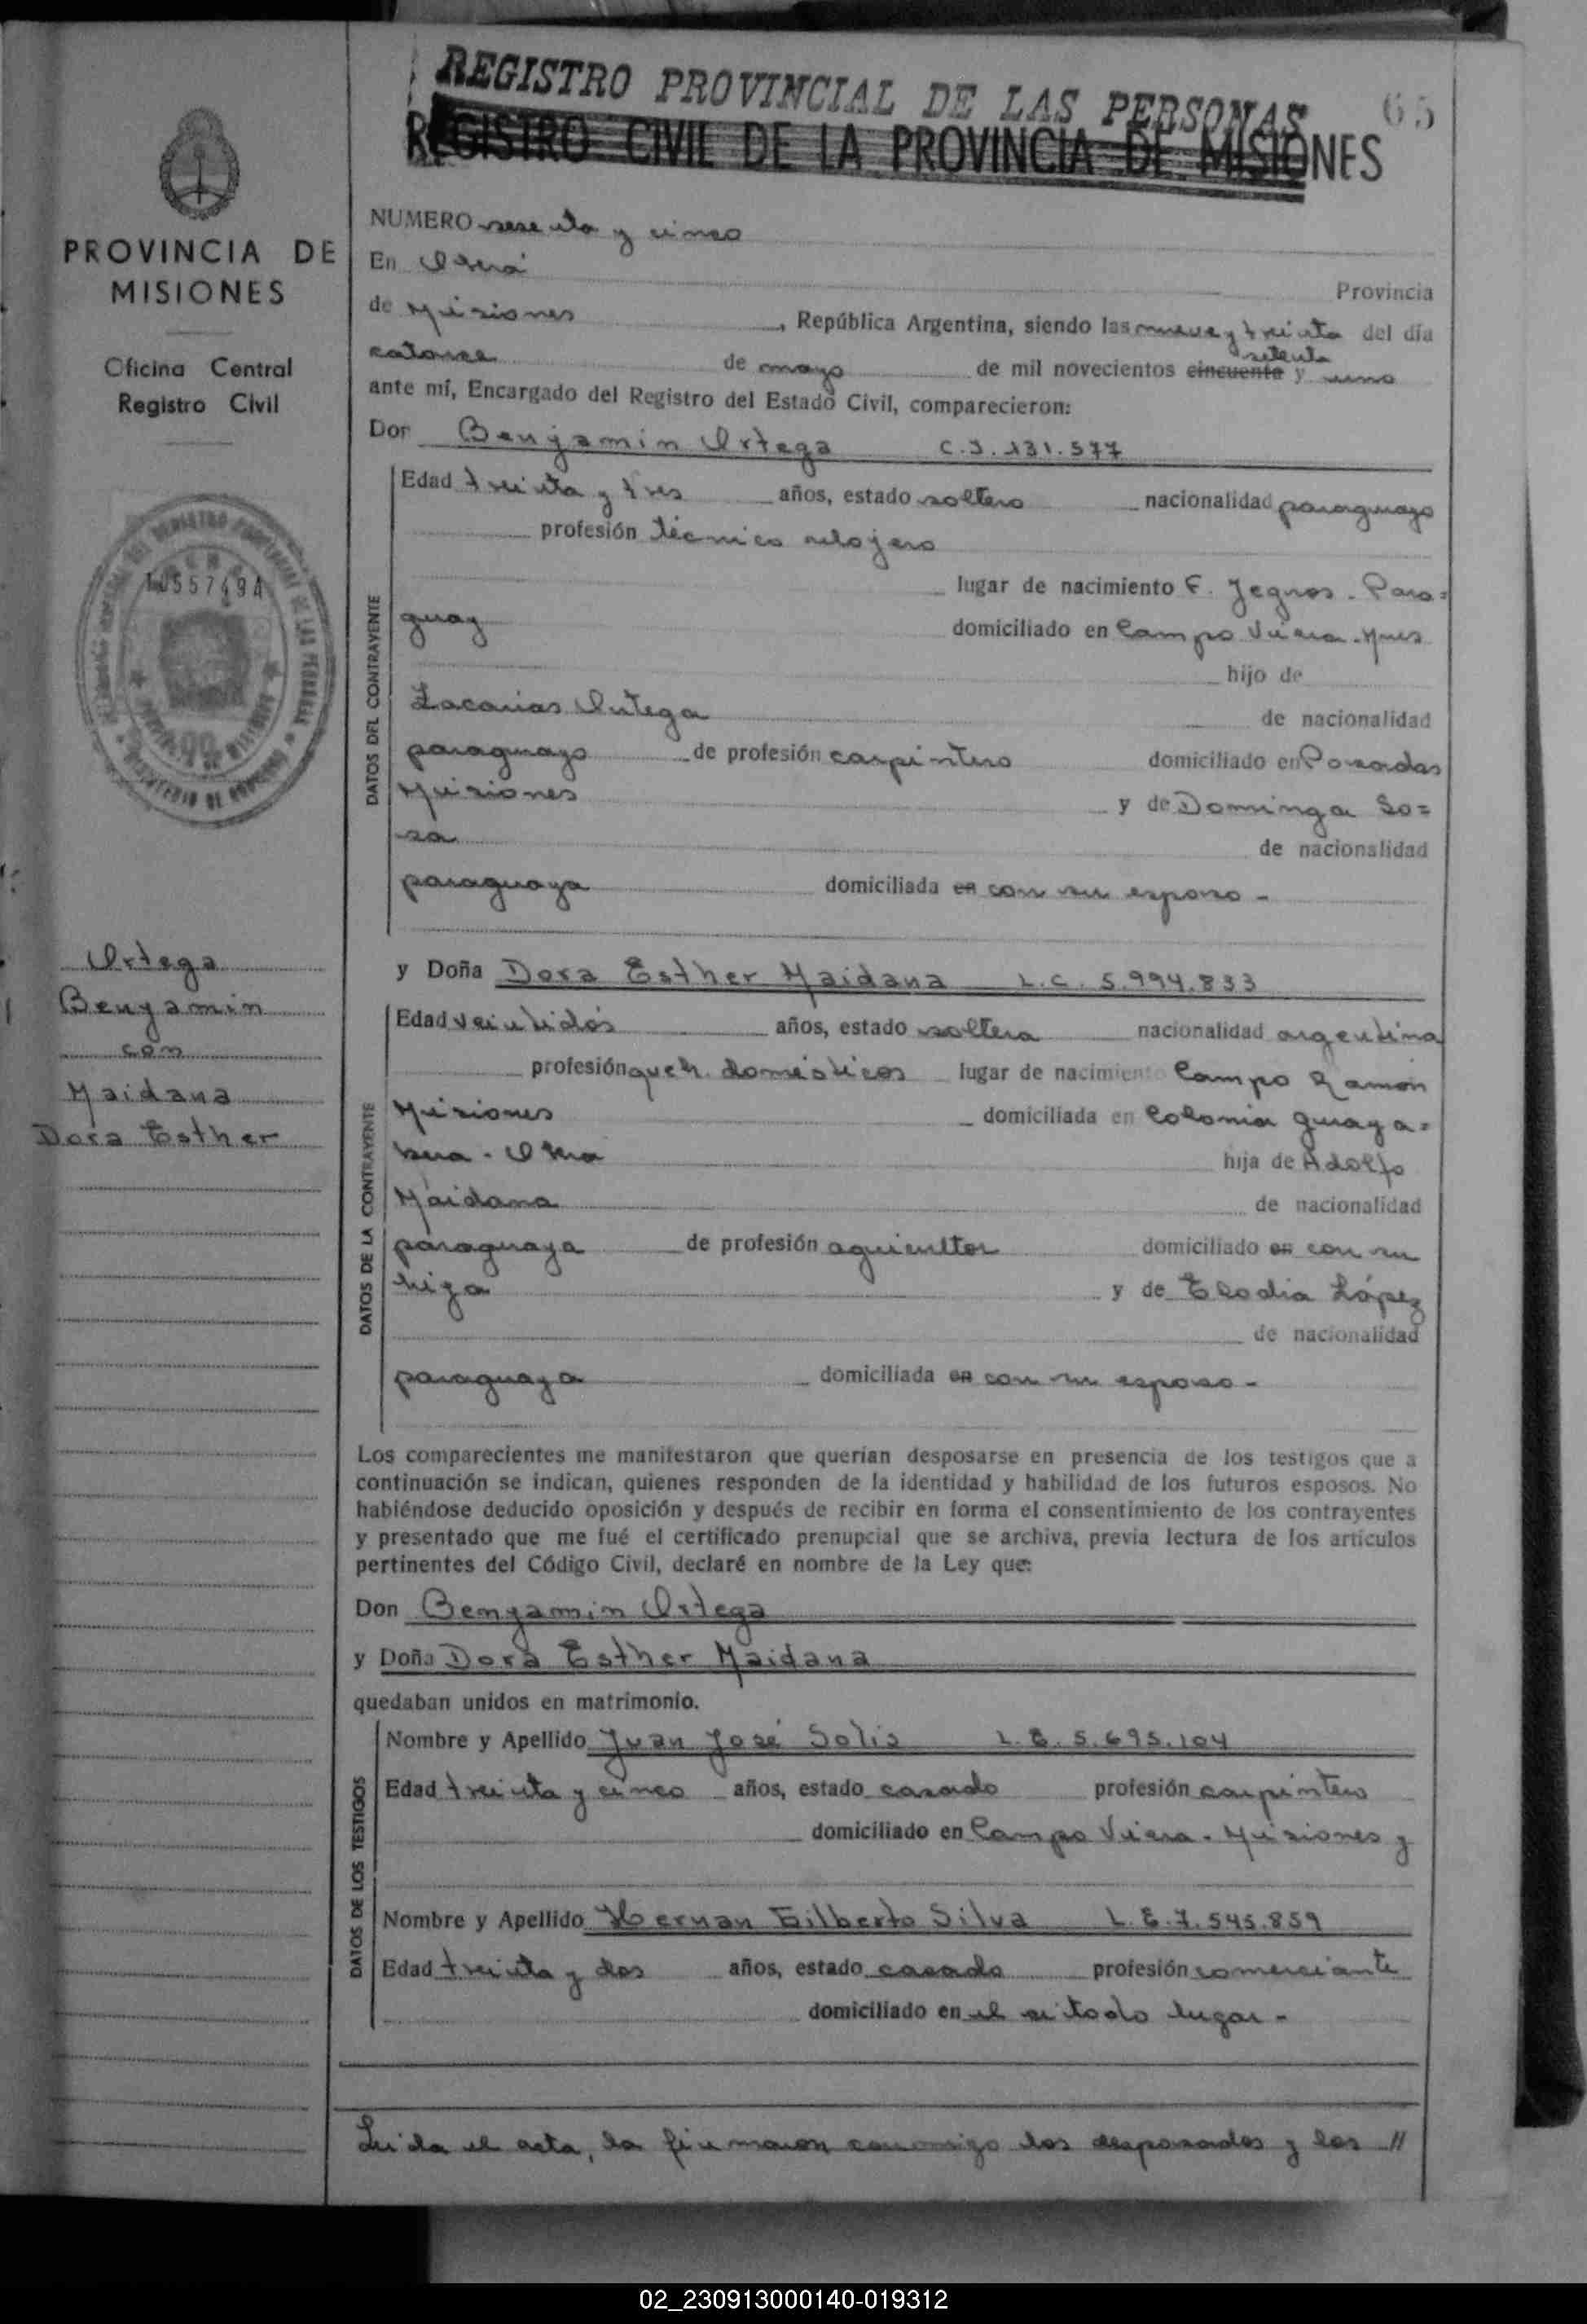 REGISTRO PROVINCIAL DE LAS PERSONAS
65
REGISTRO CIVIL DE LA PROVINCIA DE MISIONES
PROVINCIA DE
MISIONES
Oficina Central
Registro Civil
10557494
Ortega
Benjamin
con
Maidana
Dora Esther
NUMERO sesenta y cinco
En Oberá Provincia
de Misiones, República Argentina, siendo las nueve y treinta del día
catorce de mayo de mil novecientos cincuenta setenta y uno
ante mí, Encargado del Registro del Estado Civil, comparecieron:
Don Benjamin Ortega C.I. 131.577
DATOS DEL CONTRAYENTE
Edad treinta y tres años, estado soltero nacionalidad paraguayo
profesión técnico relojero
lugar de nacimiento F. Yegros - Para=
guay domiciliado en Campo Viera - Mnes
hijo de
Zacarias Ortega de nacionalidad
paraguayo de profesión carpintero domiciliado en Posadas
Misiones y de Dominga So=
sa de nacionalidad
paraguaya domiciliada en con su esposo -
y Doña Dora Esther Maidana L.C. 5.994.833
DATOS DE LA CONTRAYENTE
Edad veintidós años, estado soltera nacionalidad argentina
profesión queh. domésticos lugar de nacimiento Campo Ramón
Misiones domiciliada en Colonia Guaya=
bera - Oberá hija de Adolfo
Maidana de nacionalidad
paraguaya de profesión agricultor domiciliado en con su
hija y de Elodia López
de nacionalidad
paraguaya domiciliada en con su esposo -
Los comparecientes me manifestaron que querían desposarse en presencia de los testigos que a
continuación se indican, quienes responden de la identidad y habilidad de los futuros esposos. No
habiéndose deducido oposición y después de recibir en forma el consentimiento de los contrayentes
y presentado que me fué el certificado prenupcial que se archiva, previa lectura de los artículos
pertinentes del Código Civil, declaré en nombre de la Ley que:
Don Benjamin Ortega
y Doña Dora Esther Maidana
quedaban unidos en matrimonio.
DATOS DE LOS TESTIGOS
Nombre y Apellido Juan José Solis L.E. 5.695.104
Edad treinta y cinco años, estado casado profesión carpintero
domiciliado en Campo Viera - Misiones y
Nombre y Apellido Hernan Gilberto Silva L.E. 7.545.859
Edad treinta y dos años, estado casado profesión comerciante
domiciliado en el citado lugar -
Leida el acta, la firmaron conmigo los desposados y los //
02_230913000140-019312